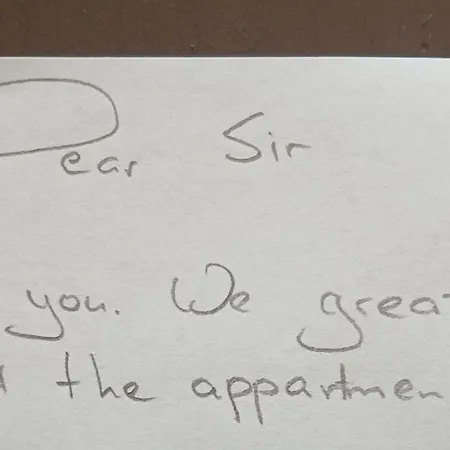 Dear Sir
you. We grea
the appartmen